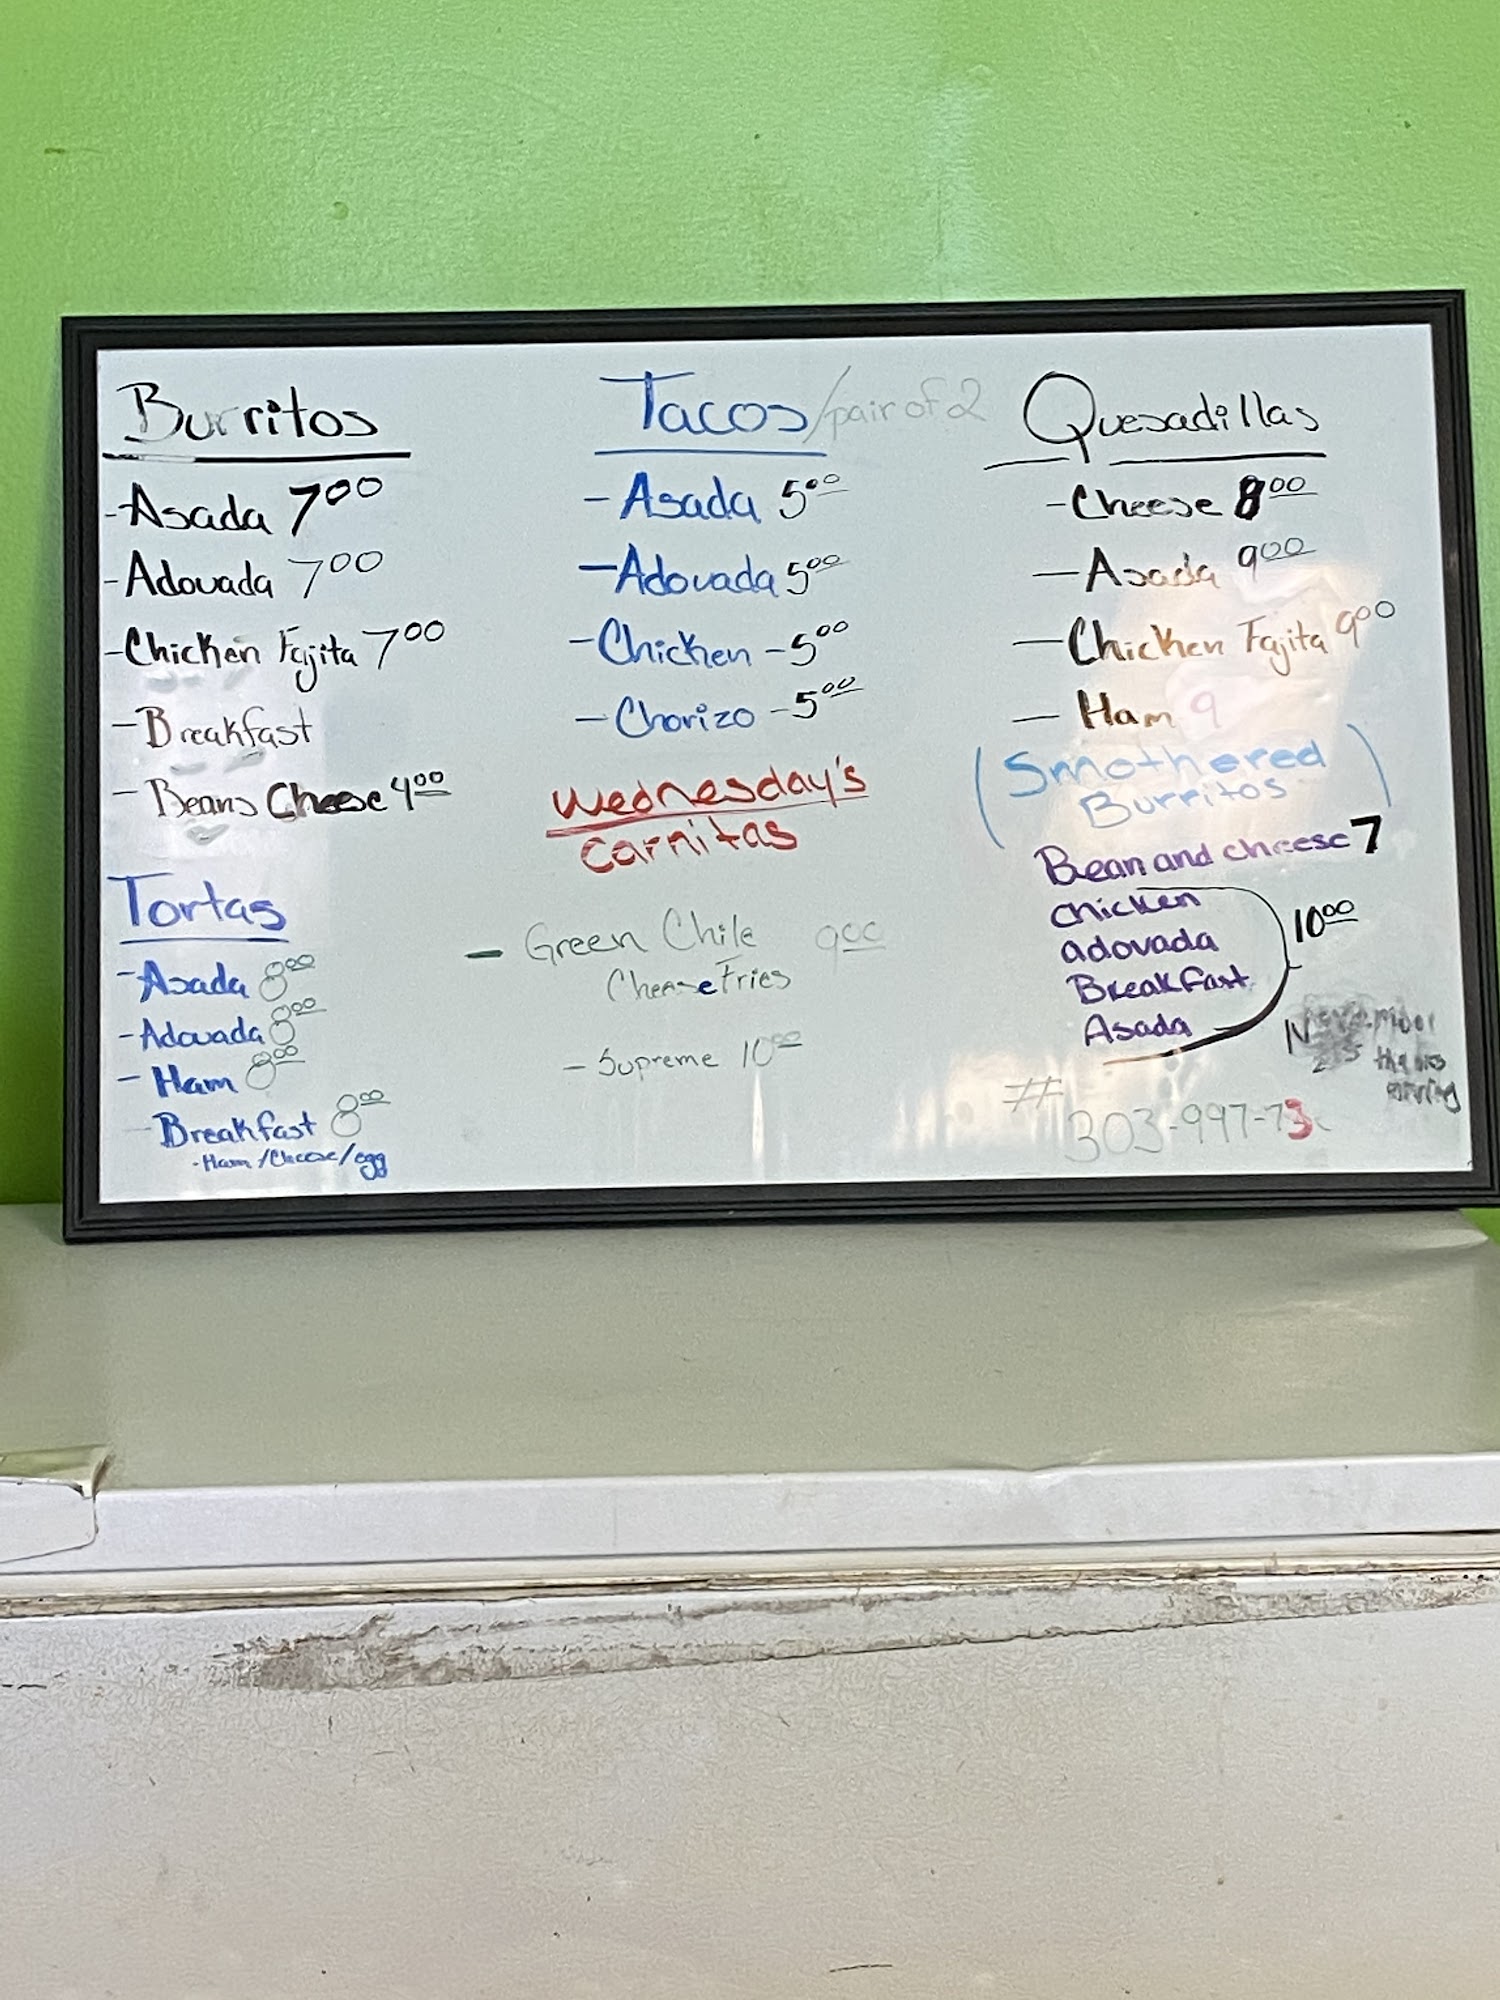 Burritos
-Asada 700
-Adovada 700
-Chicken Fajita 700
-Breakfast
-Beans Cheese 400
Tortas
-Asada 800
-Adovada 800
-Ham 800
-Breakfast 800
-Ham/Cheese/egg
Tacos/pair of 2
-Asada 500
-Adovada 500
-Chicken -500
-Chorizo -500
Wednesday's
Carnitas
- Green Chile 900
Cheese Fries
-Supreme 1000
Quesadillas
-Cheese 800
-Asada 900
-Chicken Fajita 900
-Ham 9
(Smothered
Burritos)
Bean and cheese 7
chicken
adovada 1000
Breakfast
Asada
#
303-997-73